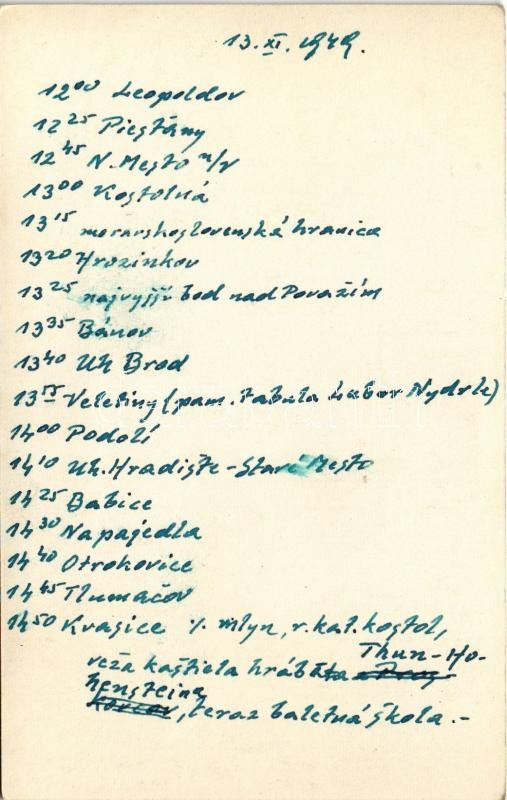 13. XI. 1949.
12⁰⁰ Leopoldov
12²⁵ Piestány
12⁴⁵ N. Mesto n/V
13⁰⁰ Kostolná
13¹⁵ moravskoslovenská hranica
13²⁰ Hrozinkov
13²⁵ najvyšší bod nad Považím
13³⁵ Bánov
13⁴⁰ Uh Brod
13⁵⁵ Veletiny (pam. tabuľa Labor Nydrle)
14⁰⁰ Podolí
14¹⁰ Uh. Hradište - Staré Mesto
14²⁵ Babice
14³⁰ Napajedla
14⁴⁰ Otrokovice
14⁴⁵ Tlumačov
14⁵⁰ Kvasice /. mlyn, r. kat. kostol,
Thun-Ho-
veža kaštieľa hrábäta
hensteina
, teraz baletná škola. -